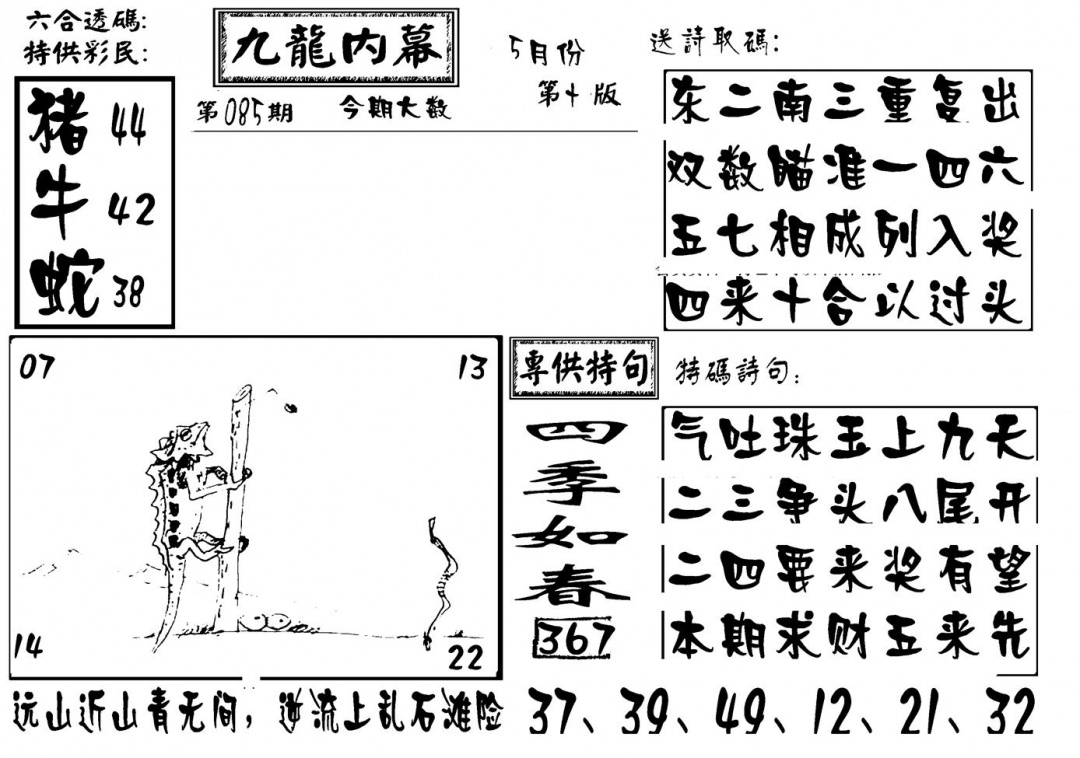 六合透碼:
特供彩民:
猪 44
牛 42
蛇 38
九龍内幕
5月份
第十版
第085期 今期大数
送詩取碼:
东二南三重复出
双数瞄准一四六
五七相成列入奖
四来十合以过头
07 13
14 22
远山近山青无间，逆流上乱石滩险
專供特句
四季如春
367
特碼詩句:
气吐珠玉上九天
二三争头八尾开
二四要来奖有望
本期求财五来先
37、39、49、12、21、32